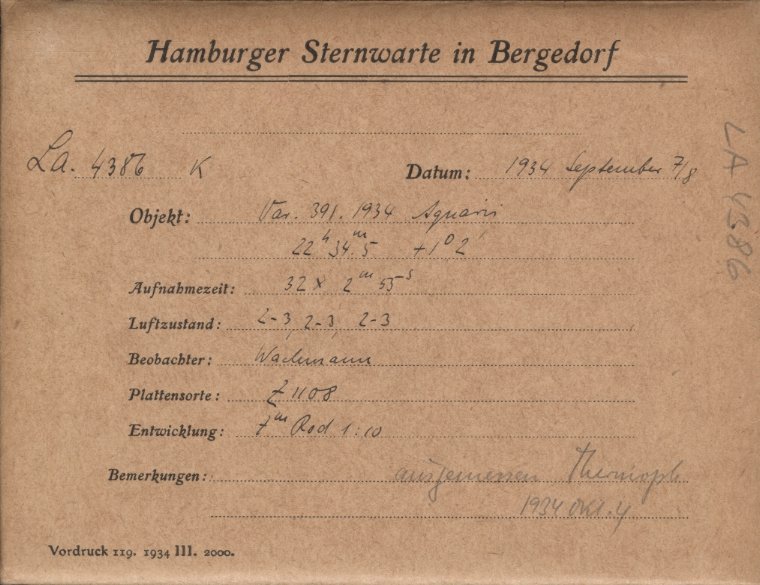 Hamburger Sternwarte in Bergedorf
La. 4386 K Datum: 1934 September 7/8
Objekt: Var. 391.1934 Aquarii
22ʰ 34.ᵐ5 +1° 2'
Aufnahmezeit: 32 x 2ᵐ 55ˢ
Luftzustand: 2-3, 2-3, 2-3
Beobachter: Wachmann
Plattensorte: Z 1108
Entwicklung: 7ᵐ Rod 1:10
Bemerkungen: ausgemessen Thermoph
1934 Okt. 4
Vordruck 119. 1934 III. 2000.
LA 4386